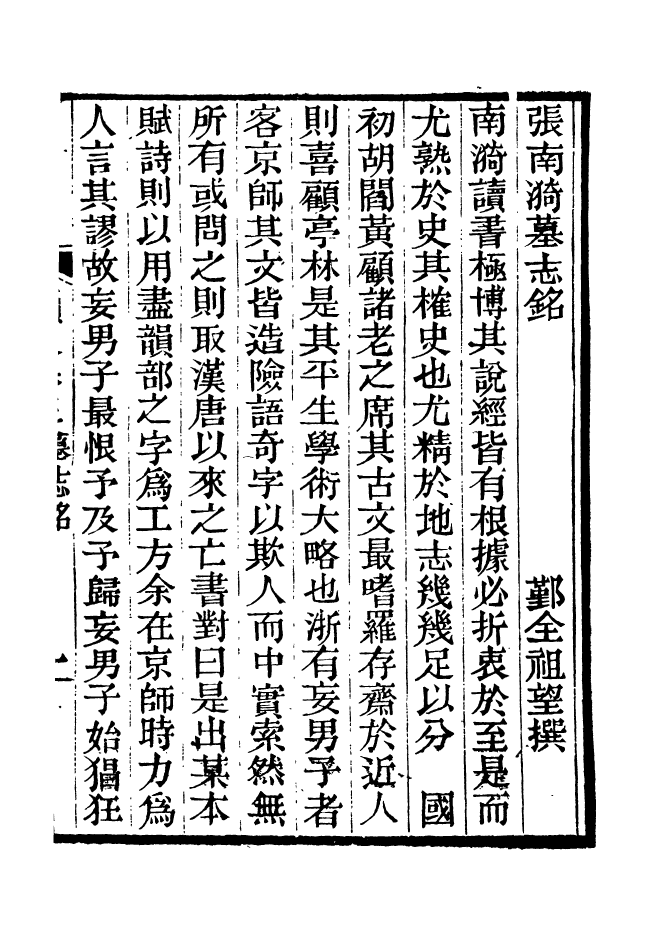 張南漪墓志銘 鄞全祖望撰
南漪讀書極博其說經皆有根據必折衷於至是而
尤熟於史其榷史也尤精於地志幾幾足以分 國
初胡閻黃顧諸老之席其古文最嗜羅存齋於近人
則喜顧亭林是其平生學術大略也浙有妄男子者
客京師其文皆造險語奇字以欺人而中實索然無
所有或問之則取漢唐以來之亡書對曰是出某本
賦詩則以用盡韻部之字爲工方余在京師時力爲
人言其謬故妄男子最恨予及予歸妄男子始猖狂
墓志銘